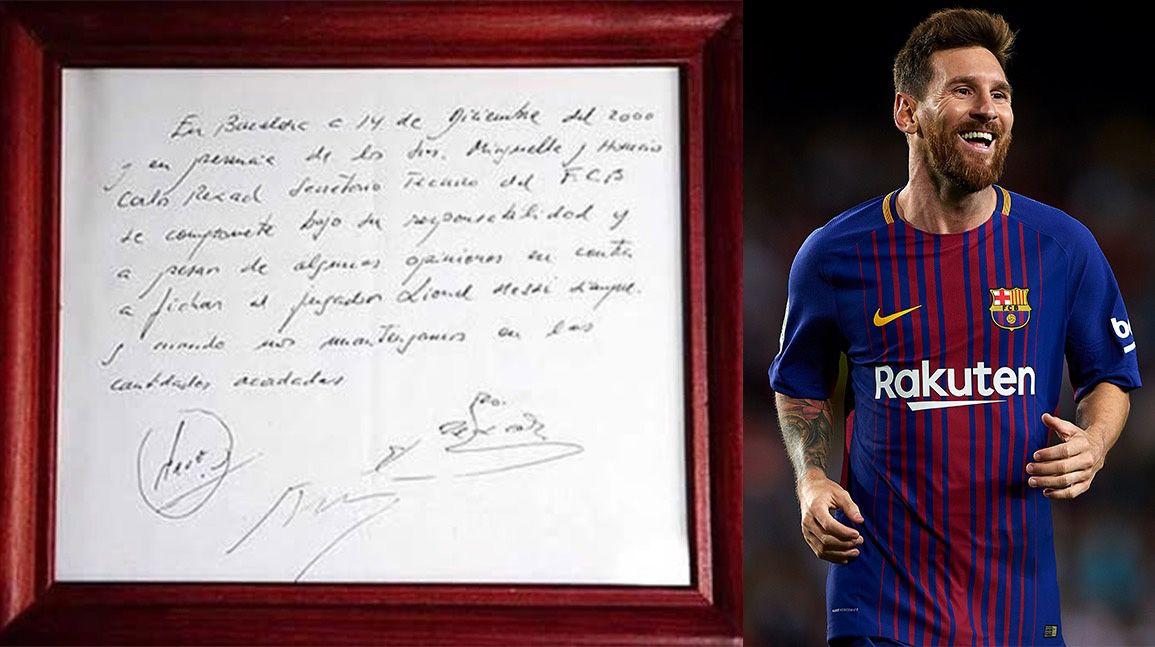 En Barcelona a 14 de Diciembre del 2000
y en presencia de los Srs. Minguella y Horacio
Carlos Rexach Secretario Tecnico del F.C.B
se compromete bajo su responsabilidad y
a pesar de algunas opiniones en contra
a fichar al jugador Lionel Messi siempre
y cuando nos mantengamos en las
cantidades acordadas
FCB
be
Rakuten